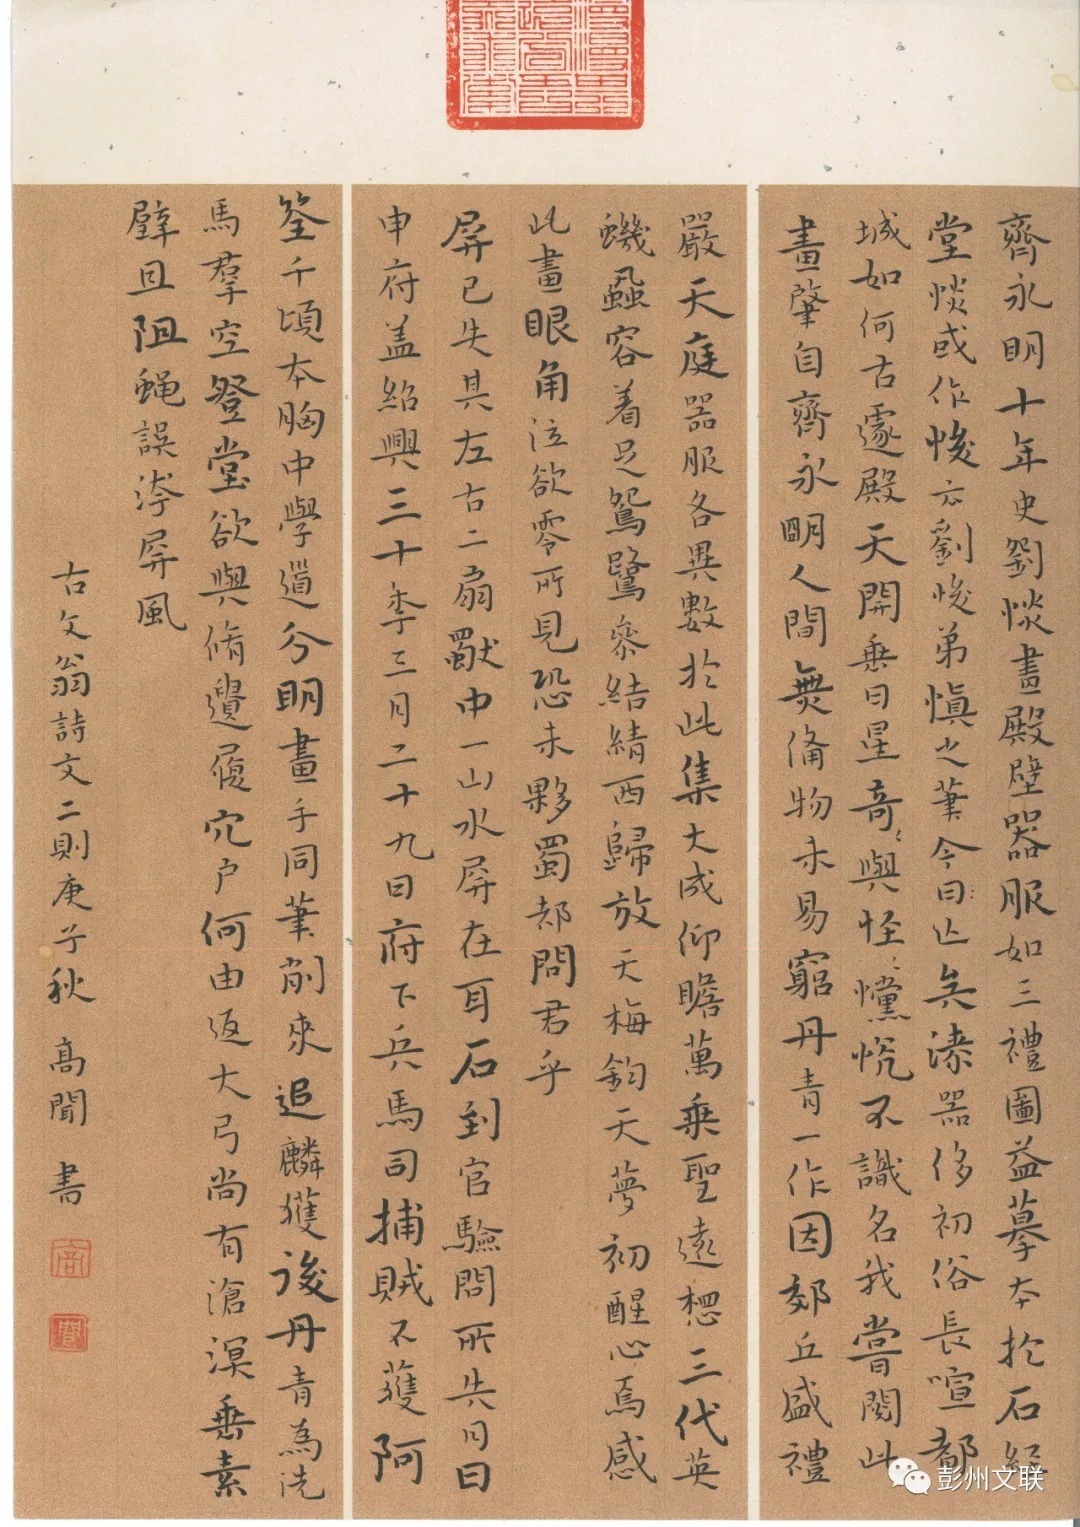 齊永明十年史劉悛畫殿壁器服如三禮圖益摹本於石經
堂惔或作悛亦劉悛弟慎之筆今日亡矣漆器侈初俗長喧都
城如何古邃殿天開垂日星奇與怪懭怳不識名我嘗閱此
畫肇自齊永明人間無備物未易窮丹青一作因郊丘盛禮
嚴天庭器服各異數於此集大成仰瞻萬乘聖遠想三代英
蟣蝨容着足鴛鷺參結綪西歸放天梅鈞天夢初醒心焉感
此畫眼角泣欲零所見恐未夥蜀都問君乎
屏已失其左右二扇獸中一山水屏在耳石到官驗問所失日
申府蓋紹興三十季三月二十九日府下兵馬司捕賊不獲阿
筌千頃本胸中學道分明畫手同筆削來追麟獲後丹青為洗
馬羣空登堂欲與脩遺履穴戶何由返大弓尚有滄溟垂素
壁且阻蝇誤涍屏風
古文翁詩文二則庚子秋 高聞 書
彭州文联